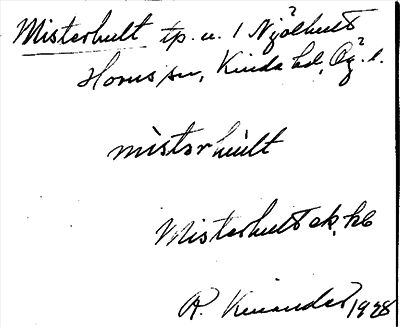 Misterhult tp. u. 1 Njölhult
Horns sn, Kinda hd, Ög. l.
mìstərhùlt
Misterhult ek. kb
R. Kinander 1928